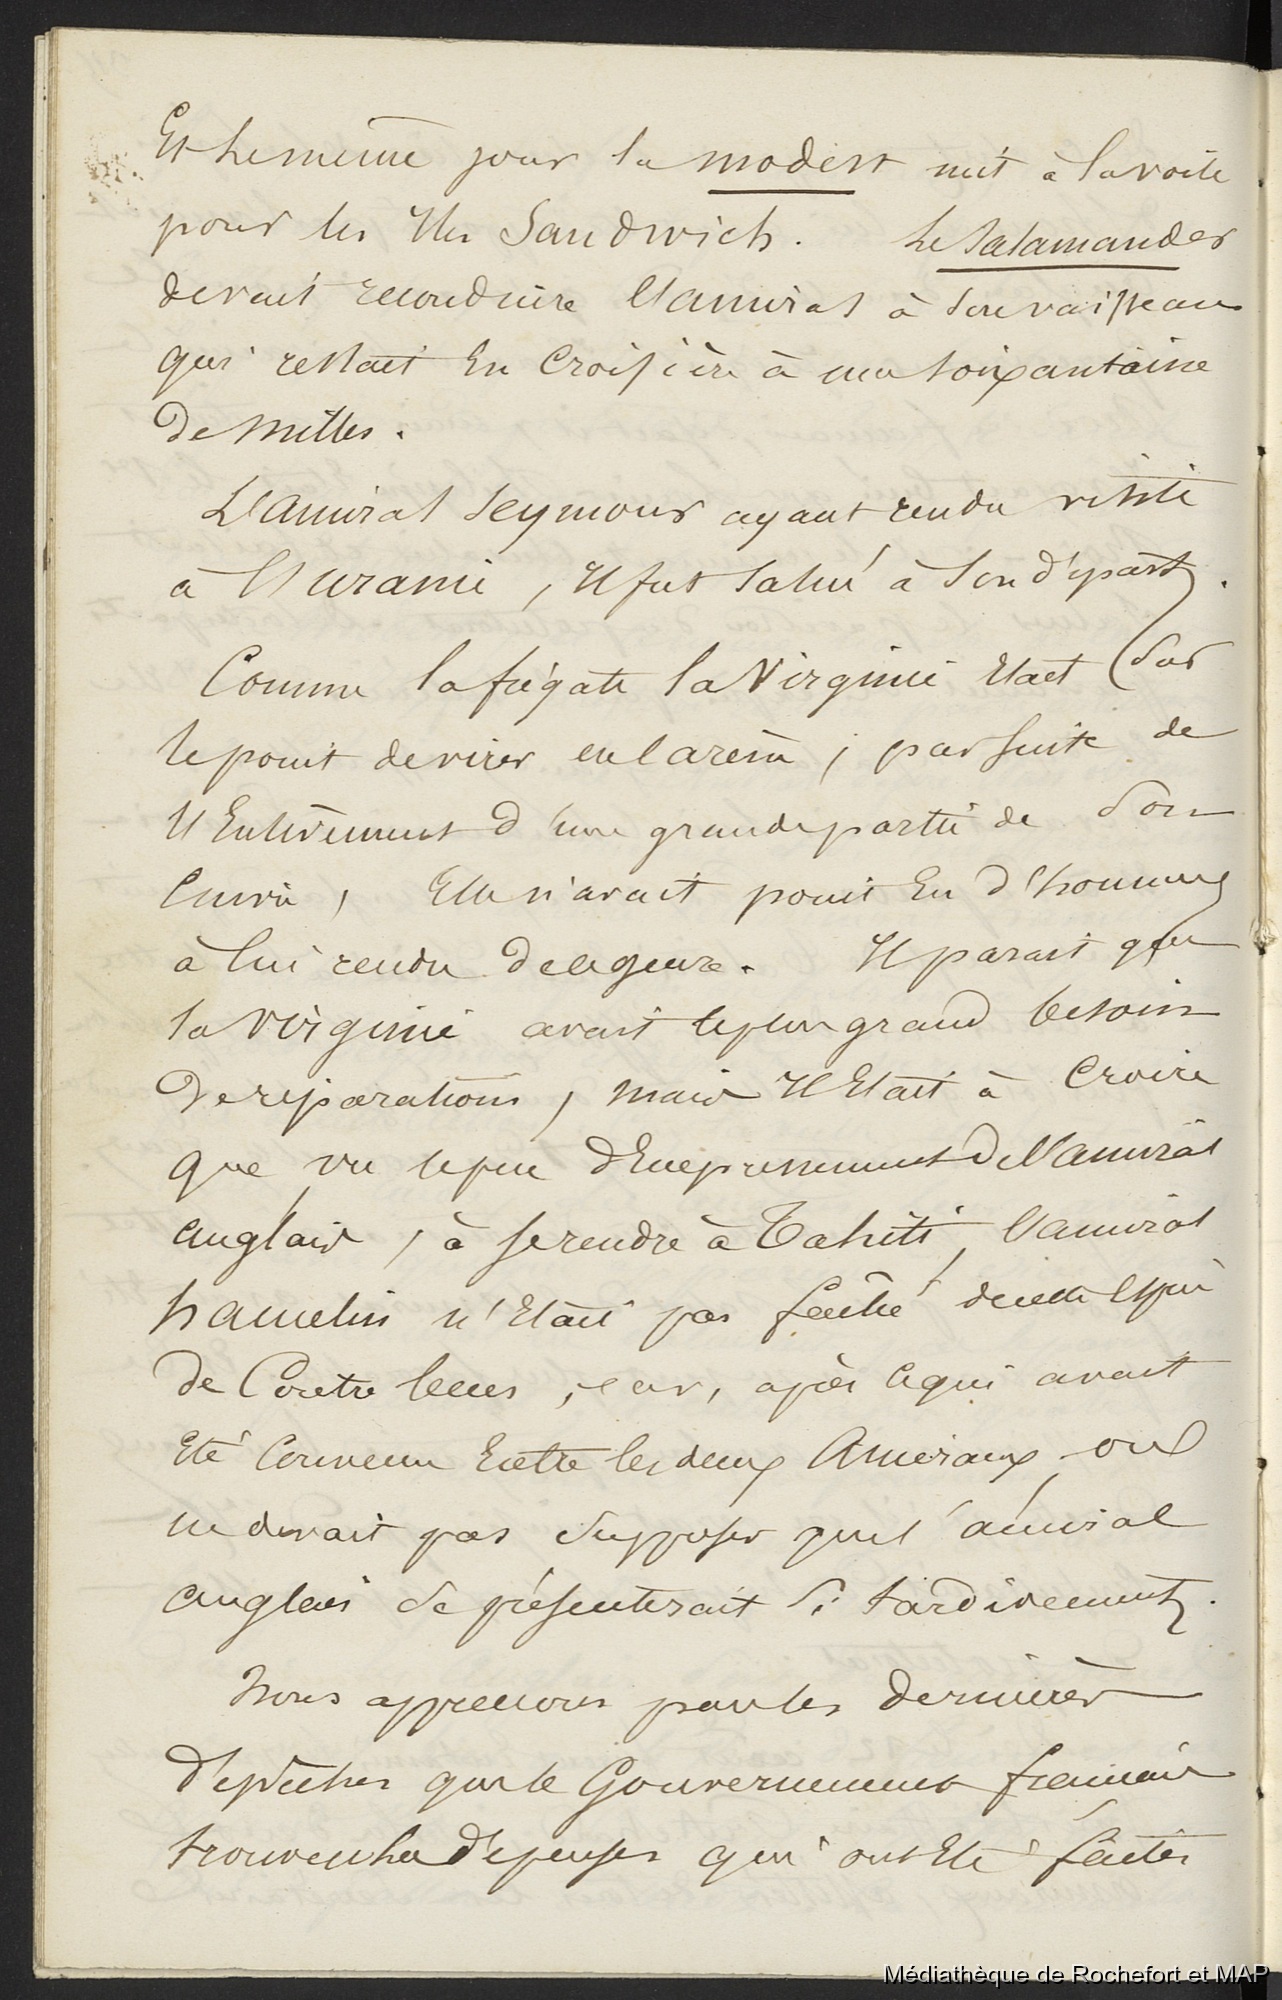 Et le même jour la modest mit à la voile
pour les Iles Sandwich. Le Salamander
devait reconduire l'amiral à son vaisseau
qui restait En Croisière à une soixantaine
de milles.
L'amiral Seymour ayant rendu visite
à l'uranie, Il fut salué à son départ.
Comme la frégate la Virginie Etait sur
le point de virer en carène, par suite de
l'Enlèvement d'une grande partie de son
Cuivre, Elle n'avait point Eu d'honneurs
à lui rendu de ce genre. Il parait que
la Virginie avait le plus grand besoin
de réparations, mais Il Etait à Croire
que vu le peu d'Empressement de l'amiral
anglais, à se rendre à Tahiti, l'amiral
hamelin n'Etait pas fâché de cette Espèce
de Contre tems, car, après ce qui avait
Eté Convenu Entre les deux Amiraux, on
ne devait pas Supposer que l'amiral
anglais se présenterait si tardivement.
Nous apprenons par les dernières
dépêches que le Gouvernement français
trouve les dépenses qui ont Eté faites
Médiathèque de Rochefort et MAP